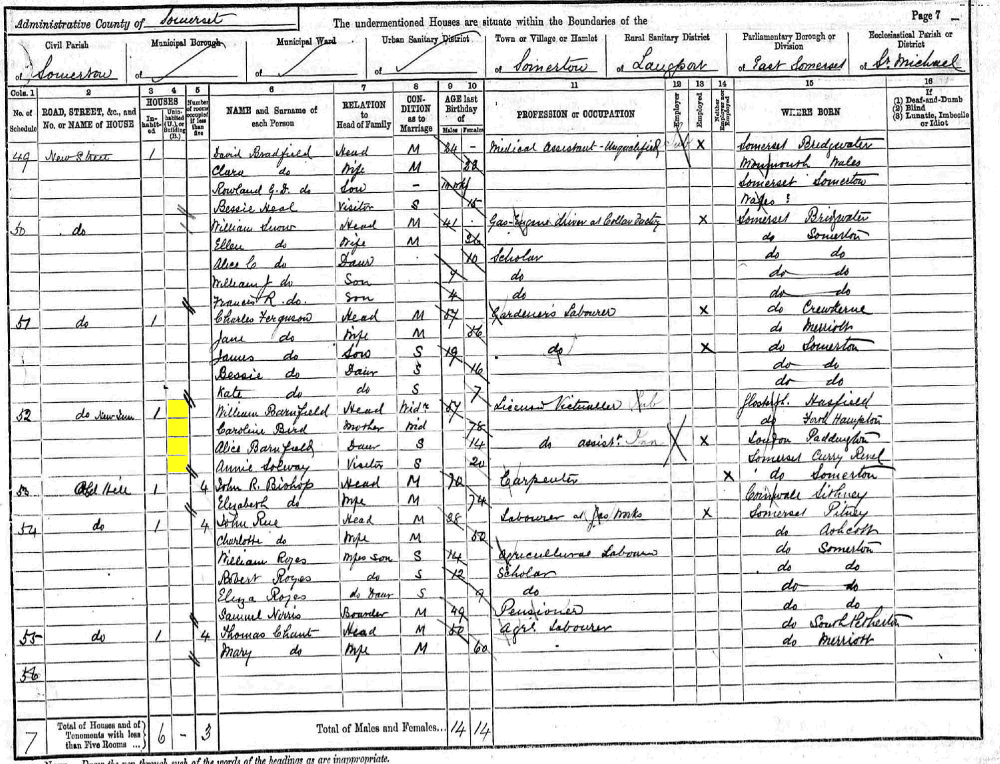 Administrative County of Somerset The undermentioned Houses are situate within the Boundaries of the Page 7
Civil Parish Municipal Borough Municipal Ward Urban Sanitary District Town or Village or Hamlet Rural Sanitary District Parliamentary Borough or Division Ecclesiastical Parish or District
of Somerton of of of of Somerton of Langport of East Somerset of St. Michael
Cols. 1 2 3 4 5 6 7 8 9 10 11 12 13 14 15 16
No. of Schedule ROAD, STREET, &c., and No. or NAME of HOUSE HOUSES Inhabited Uninhabited (U.), or Building (B.) Number of rooms occupied if less than five NAME and Surname of each Person RELATION to Head of Family CONDITION as to Marriage AGE last Birthday of Males Females PROFESSION or OCCUPATION Employer Employed Neither Employer nor Employed WHERE BORN If (1) Deaf-and-Dumb (2) Blind (3) Lunatic, Imbecile or Idiot
49 New Street 1 David Bradfield Head M 24 - Medical Assistant - Unqualified Sub X Somerset Bridgwater
Clara do Wife M Monmouth Wales
Rowland G.D. do Son - Somerset Somerton
Bessie Heal Visitor S 15 Wales ?
50 do William Snow Head M 41 Gas-Engine driver at Collar Facty X Somerset Bridgwater
Ellen do Wife M do Somerton
Alice C do Daur 10 Scholar do do
William J do Son do do do
Francis R. do. Son 4 do do do
51 do 1 Charles Ferguson Head M 57 Gardener's Labourer X do Crewkerne
Jane do Wife M 56 do Merriott
James do Son S 19 do X do Somerton
Bessie do Daur S 16 do do
Kate do do S 7 do do
52 do New Inn 1 William Barnfield Head Widr 57 Licensed Victualler Pub Glostersh. Hasfield
Caroline Bird Mother Wid 78 do Forth Hampton
Alice Barnfield Daur S 14 do assist. Inn X London Paddington
Annie Solway Visitor S 20 Somerset Curry Revel
53 Hill 1 4 John R. Bishop Head M 70 Carpenter X do Somerton
Elizabeth do Wife M 74 Cornwall Sithney
54 do 1 4 John Rue Head M 38 Labourer at Gas Works X Somerset Pitney
Charlotte do Wife M 50 do Ashcott
William Royes Wifes son S 14 Agricultural Labour do Somerton
Robert Royes do S 12 Scholar do do
Eliza Royes do Daur S 9 do do do
Samuel Norris Boarder M 49 Pensioner do do
55 do 1 4 Thomas Chant Head M 50 Agrl Labourer do South Petherton
Mary do Wife M 60 do Merriott
56
7 Total of Houses and of Tenements with less than Five Rooms ... 6 - 3 Total of Males and Females... 14 14